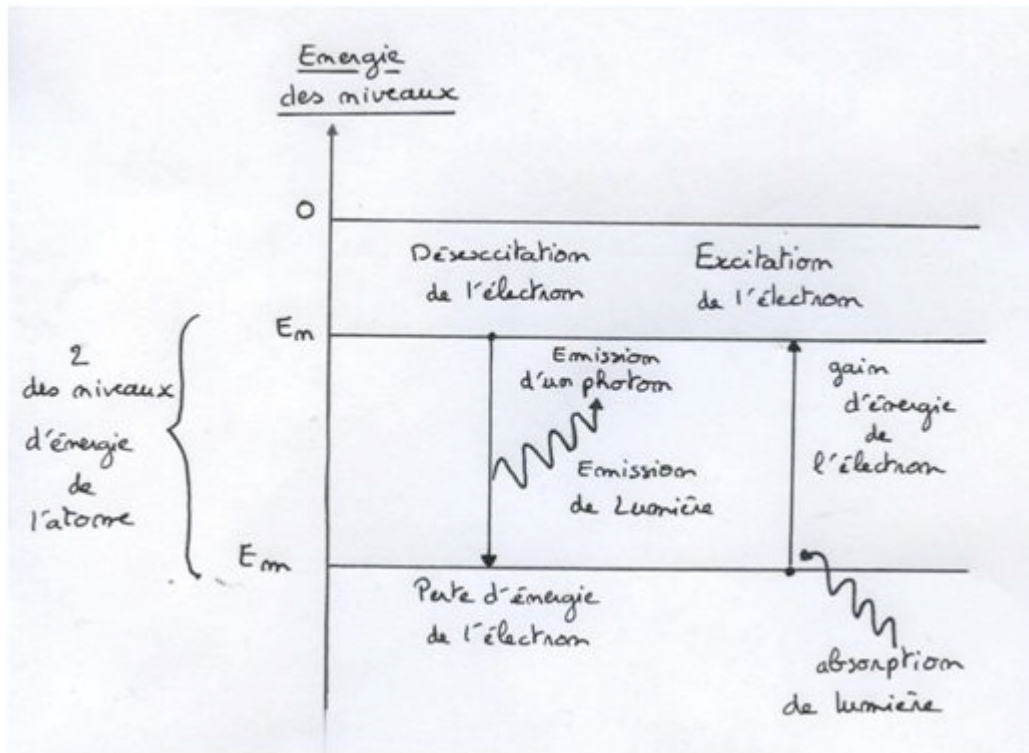 Energie
des niveaux
0
Désexcitation
de l'électron
Excitation
de l'électron
En
2
des niveaux
d'énergie
de
l'atome
Emission
d'un photon
Emission
de Lumière
gain
d'énergie
de
l'électron
Em
Perte d'énergie
de l'électron
absorption
de lumière